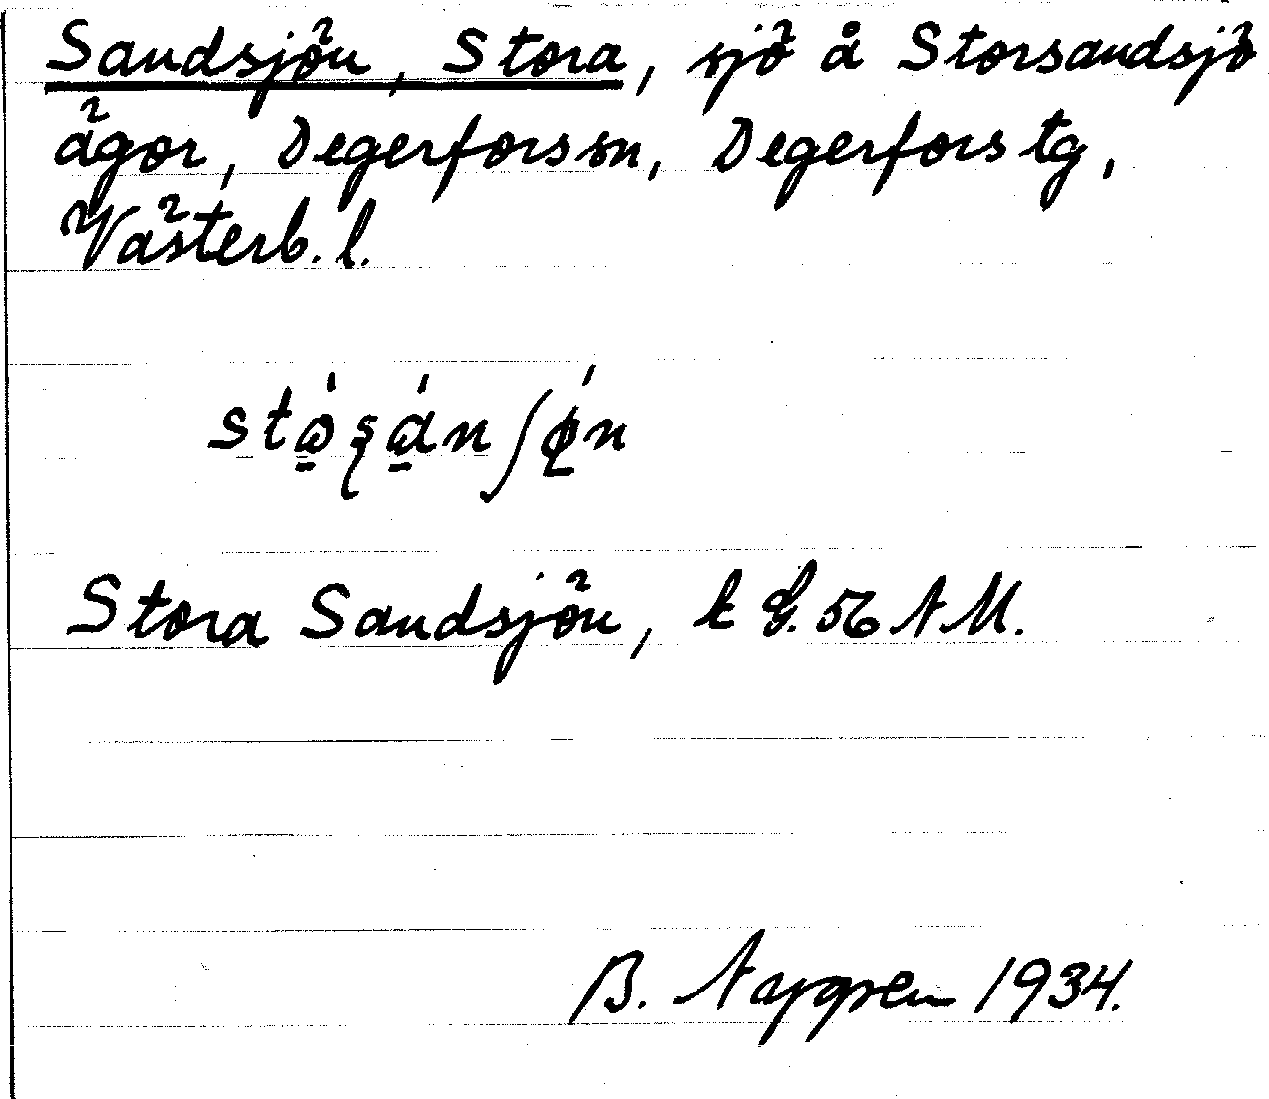 Sandsjön, Stora, sjö å Storsandsjö
ägor, Degerfors sn, Degerfors tg,
Västerb. l.
Stora Sandsjön, k G. 56 N M.
B. 1934.